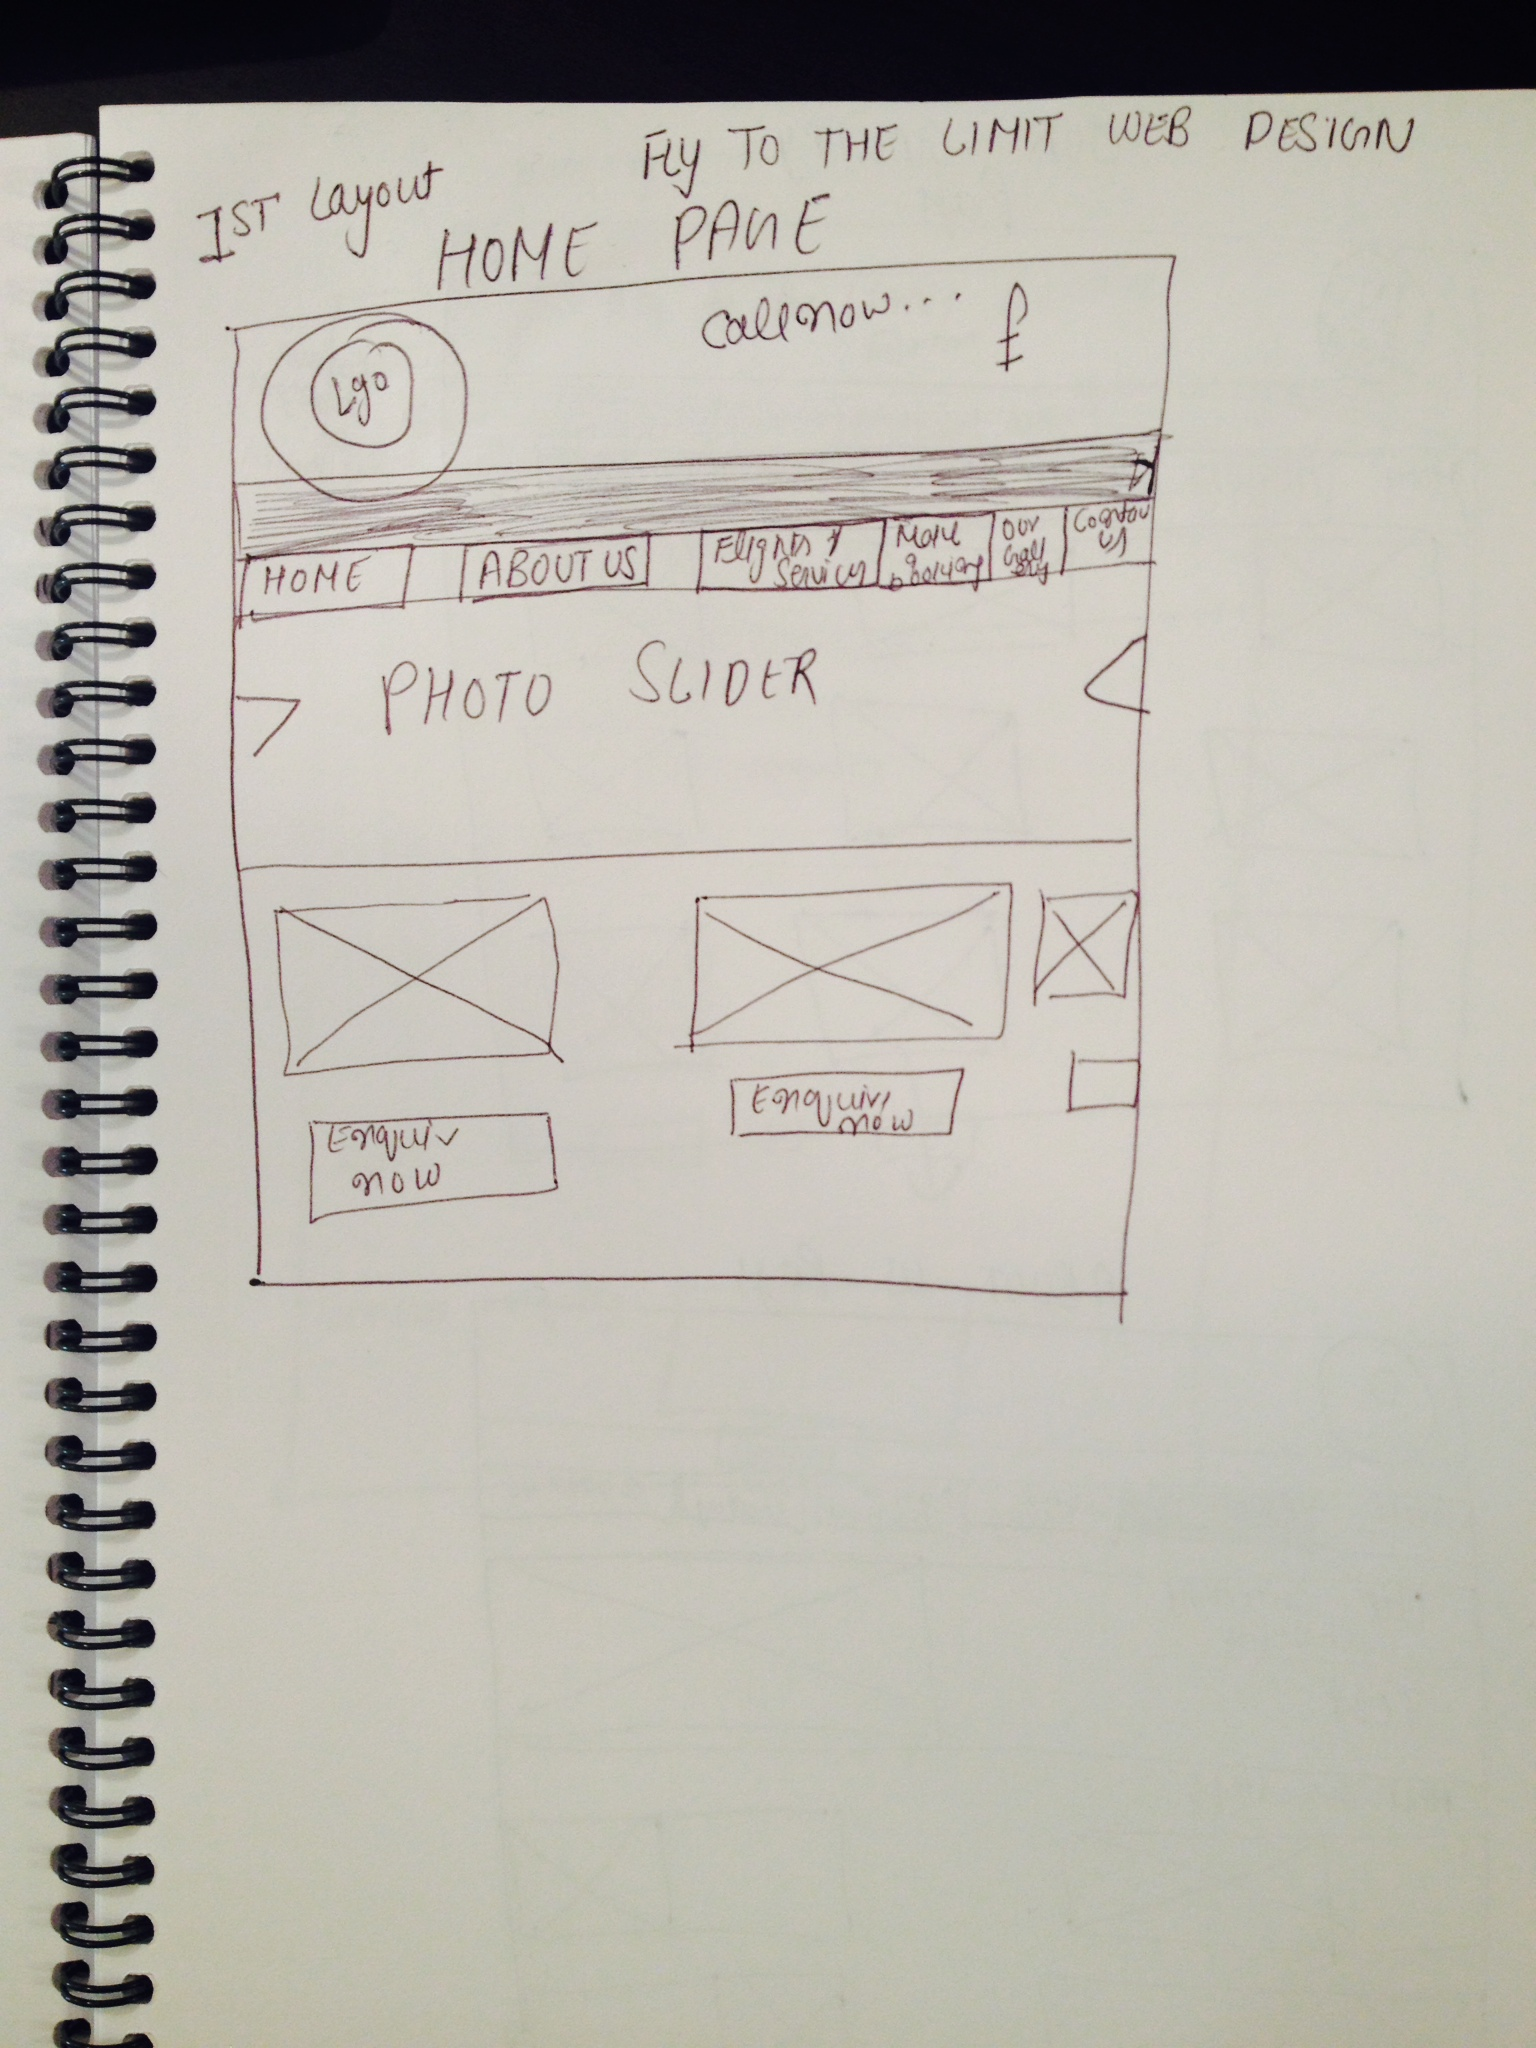 FLY TO THE LIMIT WEB DESIGN
1ST Layout
HOME PAGE
Call now...
f
Lgo
HOME
ABOUT US
Flights &
Services
Make
a booking
Our
Gall
ery
Contact
us
PHOTO SLIDER
Enquiry
now
Enquiry
now